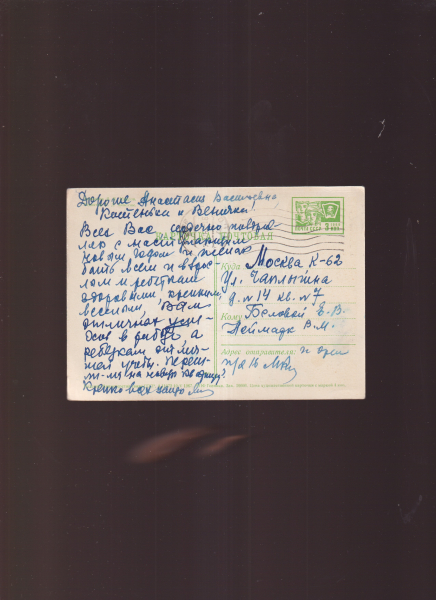 Дорогие Анастасия Васильевна,
Костенька и Веничка!
Всех Вас сердечно поздрав
ляю с наступающим
Новым Годом и желаю
быть всем и взрос
лым и ребятам
здоровыми, крепкими
веселыми, Вам
отличных успе
хов в работе, а
ребяткам отлич
ной учебы.
на новую квартиру?
Крепко вас целую
КАРТОЧКА ПОЧТОВАЯ
ПОЧТА СССР 3 коп
Куда Москва К-62
ул. Чаплыгина
д. №14 кв. №7
Кому Беловой Е. В.
Неймарк В. М.
Адрес отправителя:
п/я 16